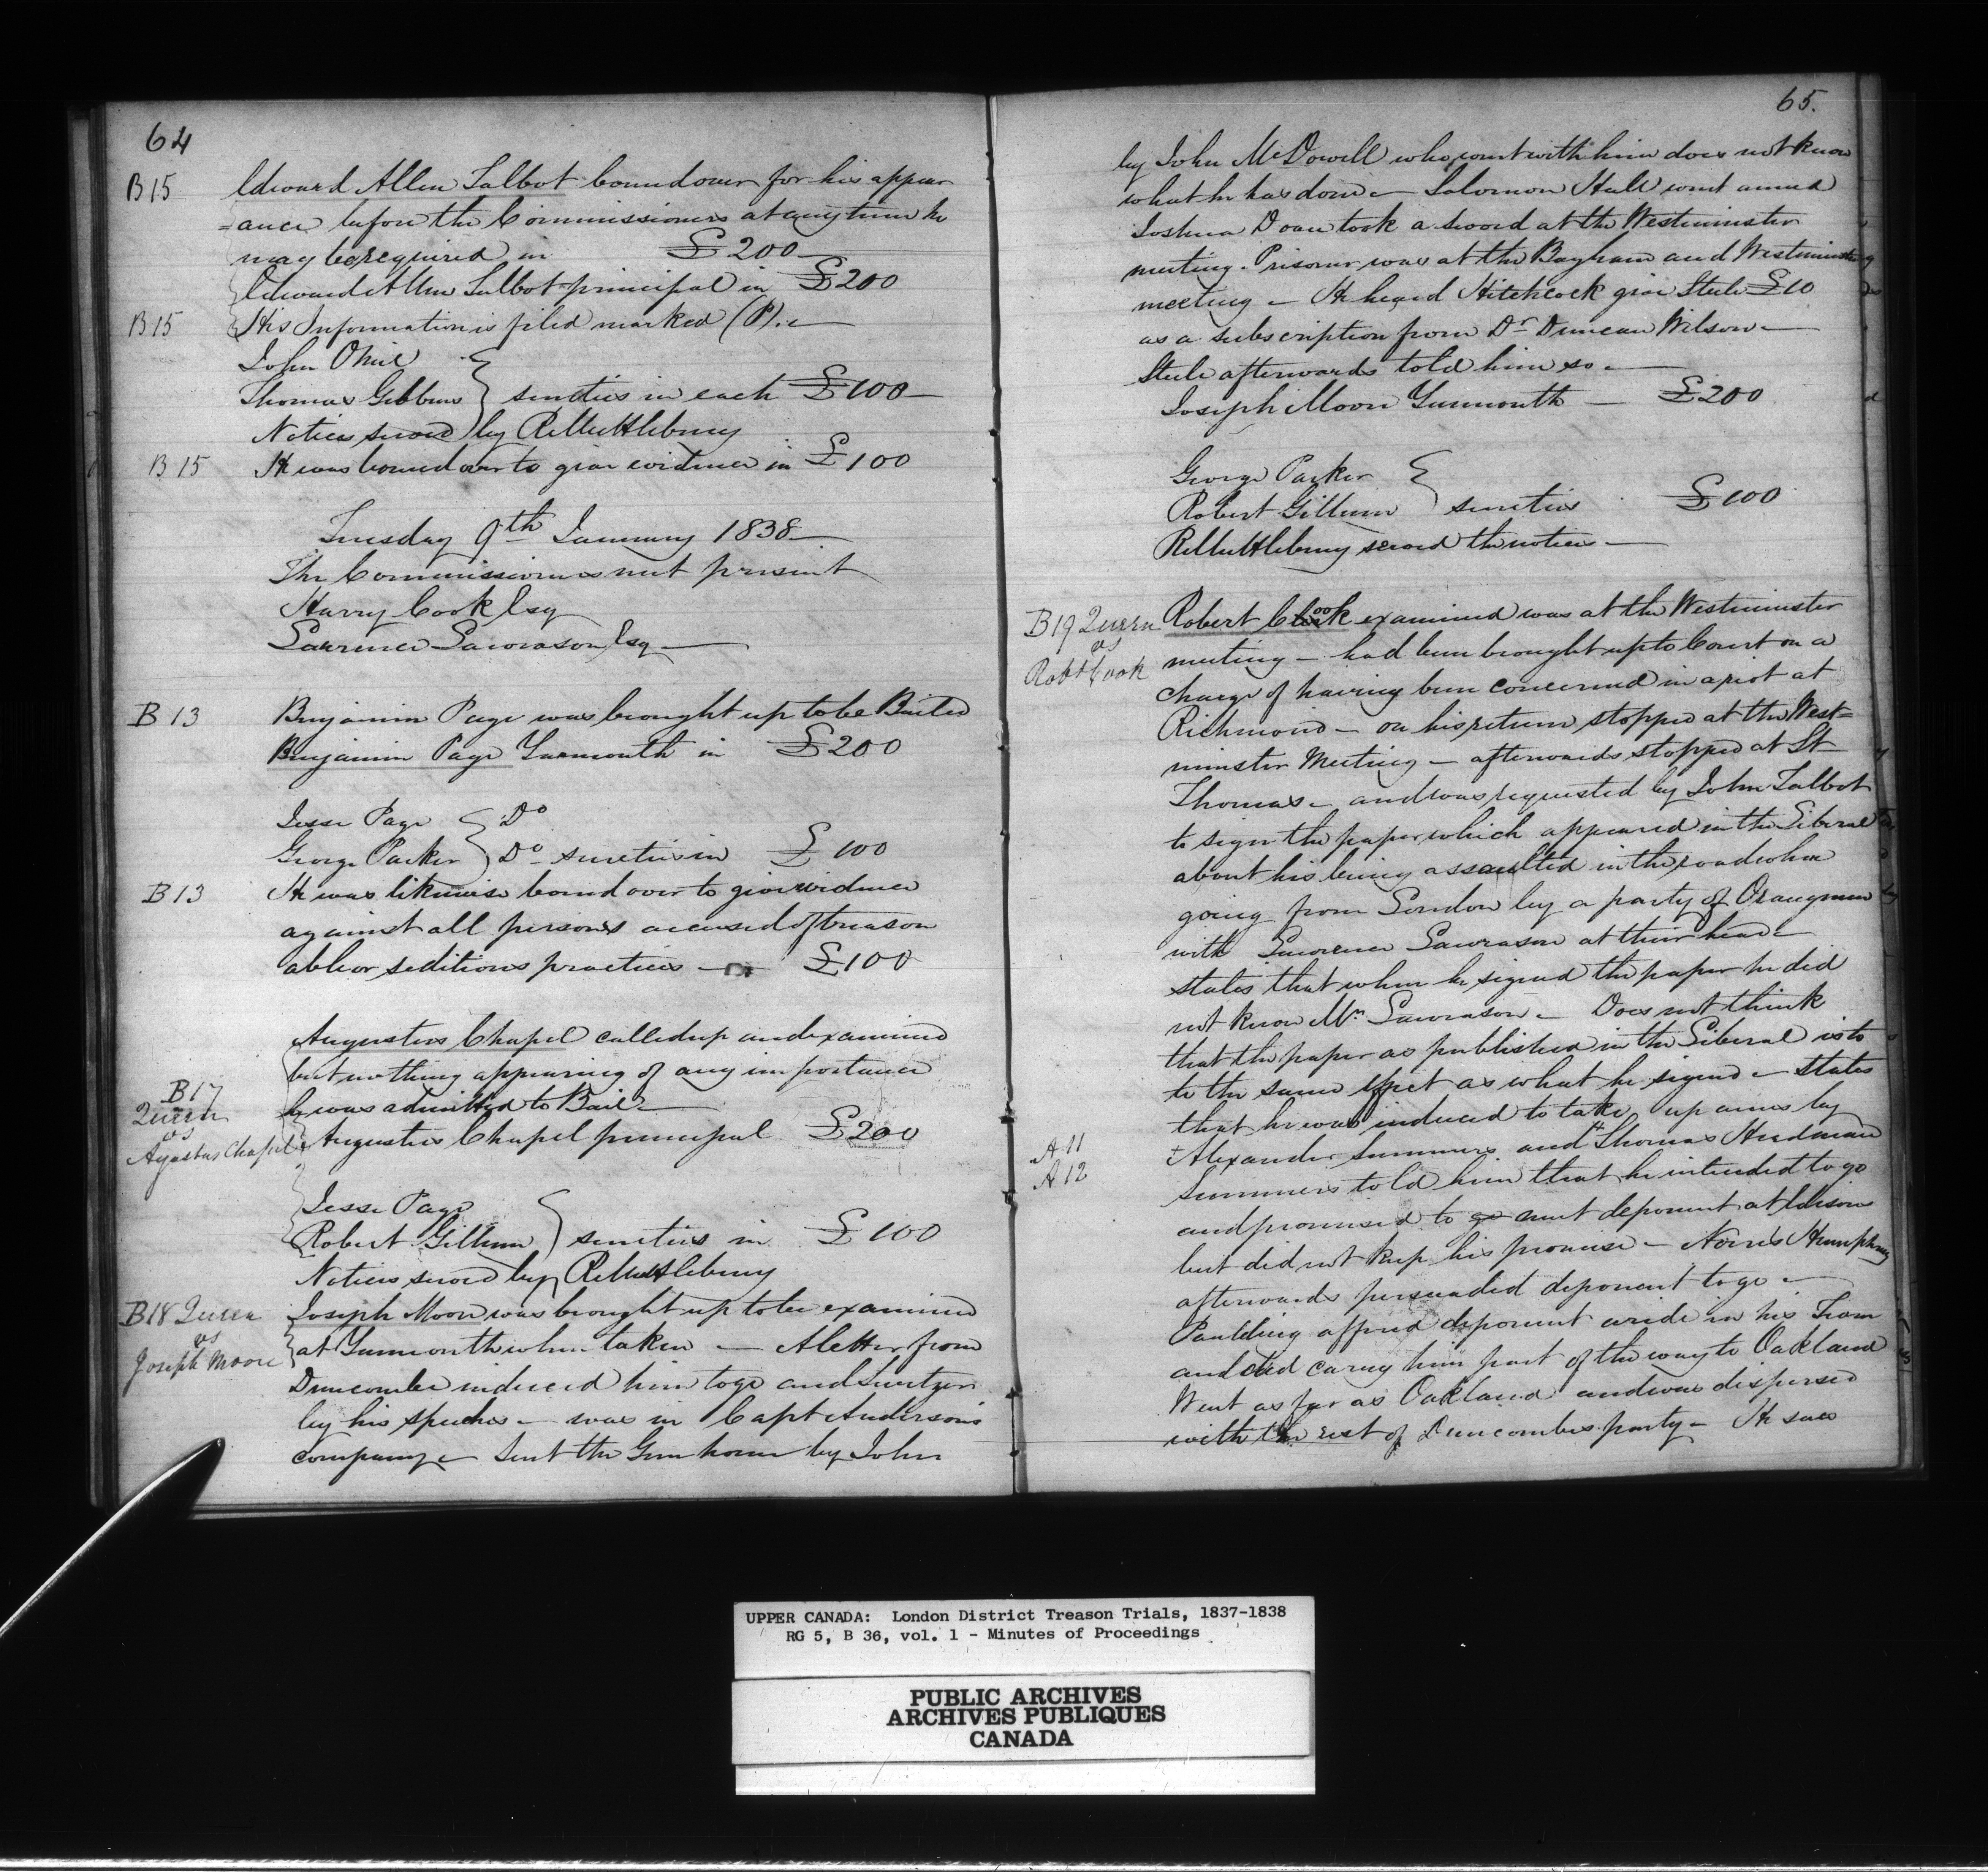 64
B15 Edward Allen Talbot bound over for his appear
=ance before the Commissioners at any time he
may be required in £200
Edward Allen Talbot principal in £200
B15 His Information is filed marked (P).
John ONeil
Thomas Gibbins } sureties in each £100
Notices served by
B15 He was bound over to give evidence in £100
Tuesday 9th January 1838
The Commissioners met present
Harry Cook Esq
Lawrence Lawrason Esq
B13 Benjamin Page was brought up to be Bailed
Benjamin Page Yarmouth in £200
Jesse Page } Do
George Parker } Do sureties in £100
B13 He was likewise bound over to give evidence
against all persons accused of treason
able or seditious practices £100
Augustus Chapel called up and examined
but nothing appearing of any importance
B17
Queen
vs
Agustus Chapel
he was admitted to Bail
Augustus Chapel principal £200
Jesse Page
Robert Gillum } sureties in £100
Notices served by
B18 Queen
vs
Joseph Moore
Joseph Moon was brought up to be examined
at Yarmouth when taken — A letter from
Duncombe induced him to go and Switzer
by his speeches — was in Capt Anderson's
company — Sent the Gun home by John
65.
by John McDowell who went with him does not know
what he has done — Solomon Hull went armed
Joshua Doan took a sword at the Westminster
meeting. Prisoner was at the Bayham and Westminster
meeting — He heard Hitchcock give Steele £10
as a subscription from Dr Duncan Wilson —
Steele afterwards told him so —
Joseph Moon Yarmouth — £200
George Parker
Robert Gillum } sureties £100
served the notices —
B19 Queen
vs
Robt Cook
Robert Cook examined was at the Westminster
meeting — had been brought up to Court on a
charge of having been concerned in a riot at
Richmond — on his return stopped at the West=
minster Meeting — afterwards stopped at St
Thomas — and was requested by John Talbot
to sign the paper which appeared in the Liberal
about his being assaulted in the road when
going from London by a party of Orangemen
with Lawrence Lawrason at their head —
states that when he signed the paper he did
not know Mr Lawrason — Does not think
that the paper as published in the Liberal is to
to the same effect as what he signed — states
that he was induced to take up arms by
A11
A12
+Alexander Summers and +Thomas Hardman
Summers told him that he intended to go
and promised to go meet deponent at Edison
but did not keep his promise — Norris Humphrey
afterwards persuaded deponent to go —
Paulding offered deponent a ride in his Team
and did carry him part of the way to Oakland
Went as far as Oakland and was dispersed
with the rest of Duncombes party — He saw
UPPER CANADA: London District Treason Trials, 1837-1838
RG 5, B 36, vol. 1 - Minutes of Proceedings
PUBLIC ARCHIVES
ARCHIVES PUBLIQUES
CANADA